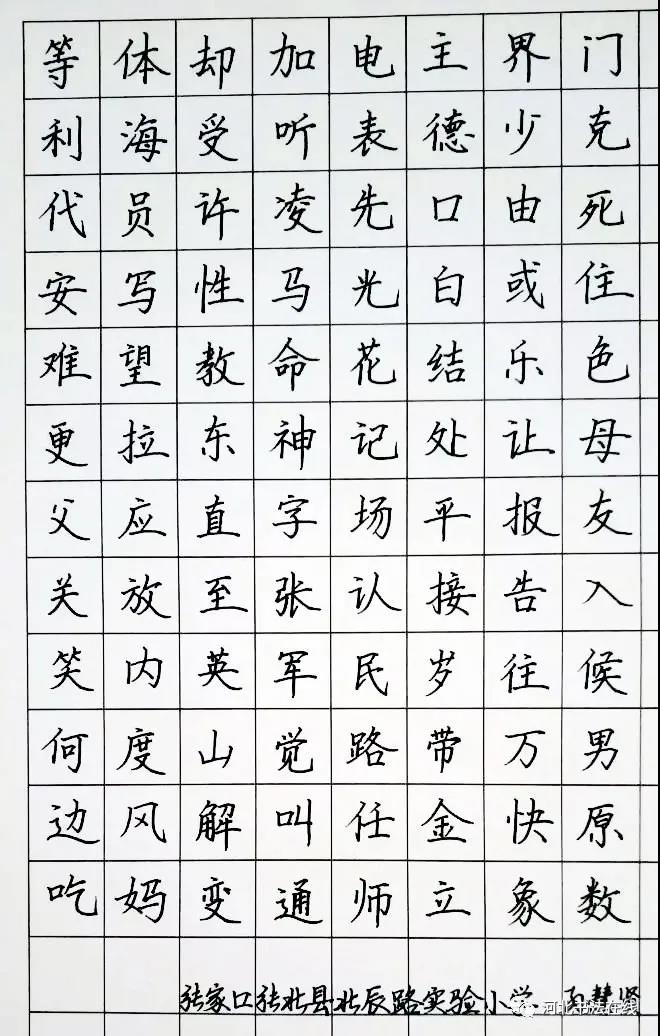 等体却加电主界门
利海受听表德少克
代员许凌先口由死
安写性马光白或住
难望教命花结乐色
更拉东神记处让母
父应直字场平报友
关放至张认接告入
笑内英军民岁往候
何度山觉路带万男
边风解叫任金快原
吃妈变通师立象数
张家口张北县北辰路实验小学
河北书法在线